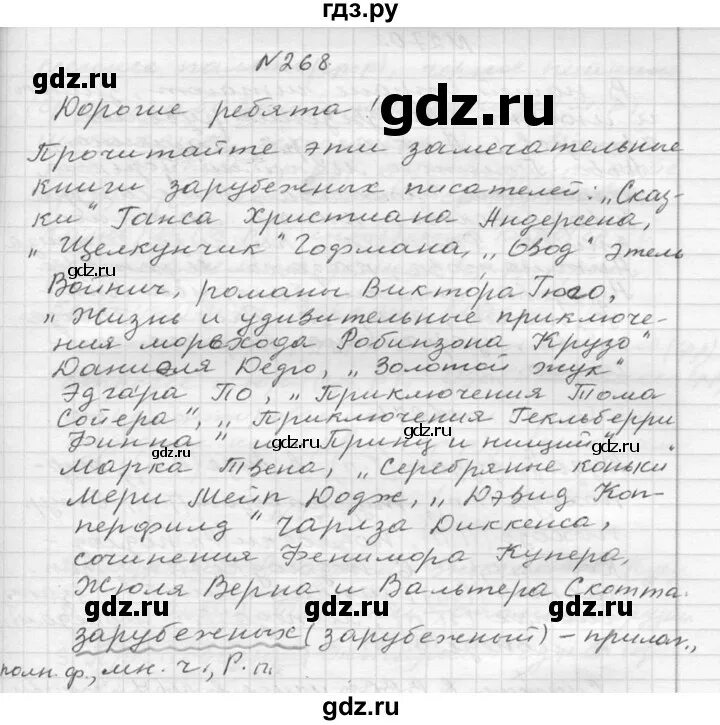 гдз.ру
№268
Дорогие ребята!
Прочитайте эти замечательные
книги зарубежных писателей: „Сказ-
ки" Ганса Христиана Андерсена,
„Щелкунчик" Гофмана, „Овод" Этель
Войнич, романы Виктора Гюго,
„Жизнь и удивительные приключе-
ния морехода Робинзона Крузо"
Даниеля Дефо, „Золотой жук"
Эдгара По, „Приключения Тома
Сойера", „Приключения Гекльберри
Финна" и „Принц и нищий"
Марка Твена, „Серебряные коньки"
Мери Мейп Додж, „Дэвид Коп-
перфилд" Чарлза Диккенса,
сочинения Фенимора Купера,
Жюля Верна и Вальтера Скотта.
зарубежных (зарубежный) – прилаг.,
полн. ф., мн. ч., Р. п.
gdz.ru
gdz.ru
gdz.ru
gdz.ru
gdz.ru
gdz.ru
gdz.ru
gdz.ru
gdz.ru
gdz.ru
gdz.ru
gdz.ru
gdz.ru
gdz.ru